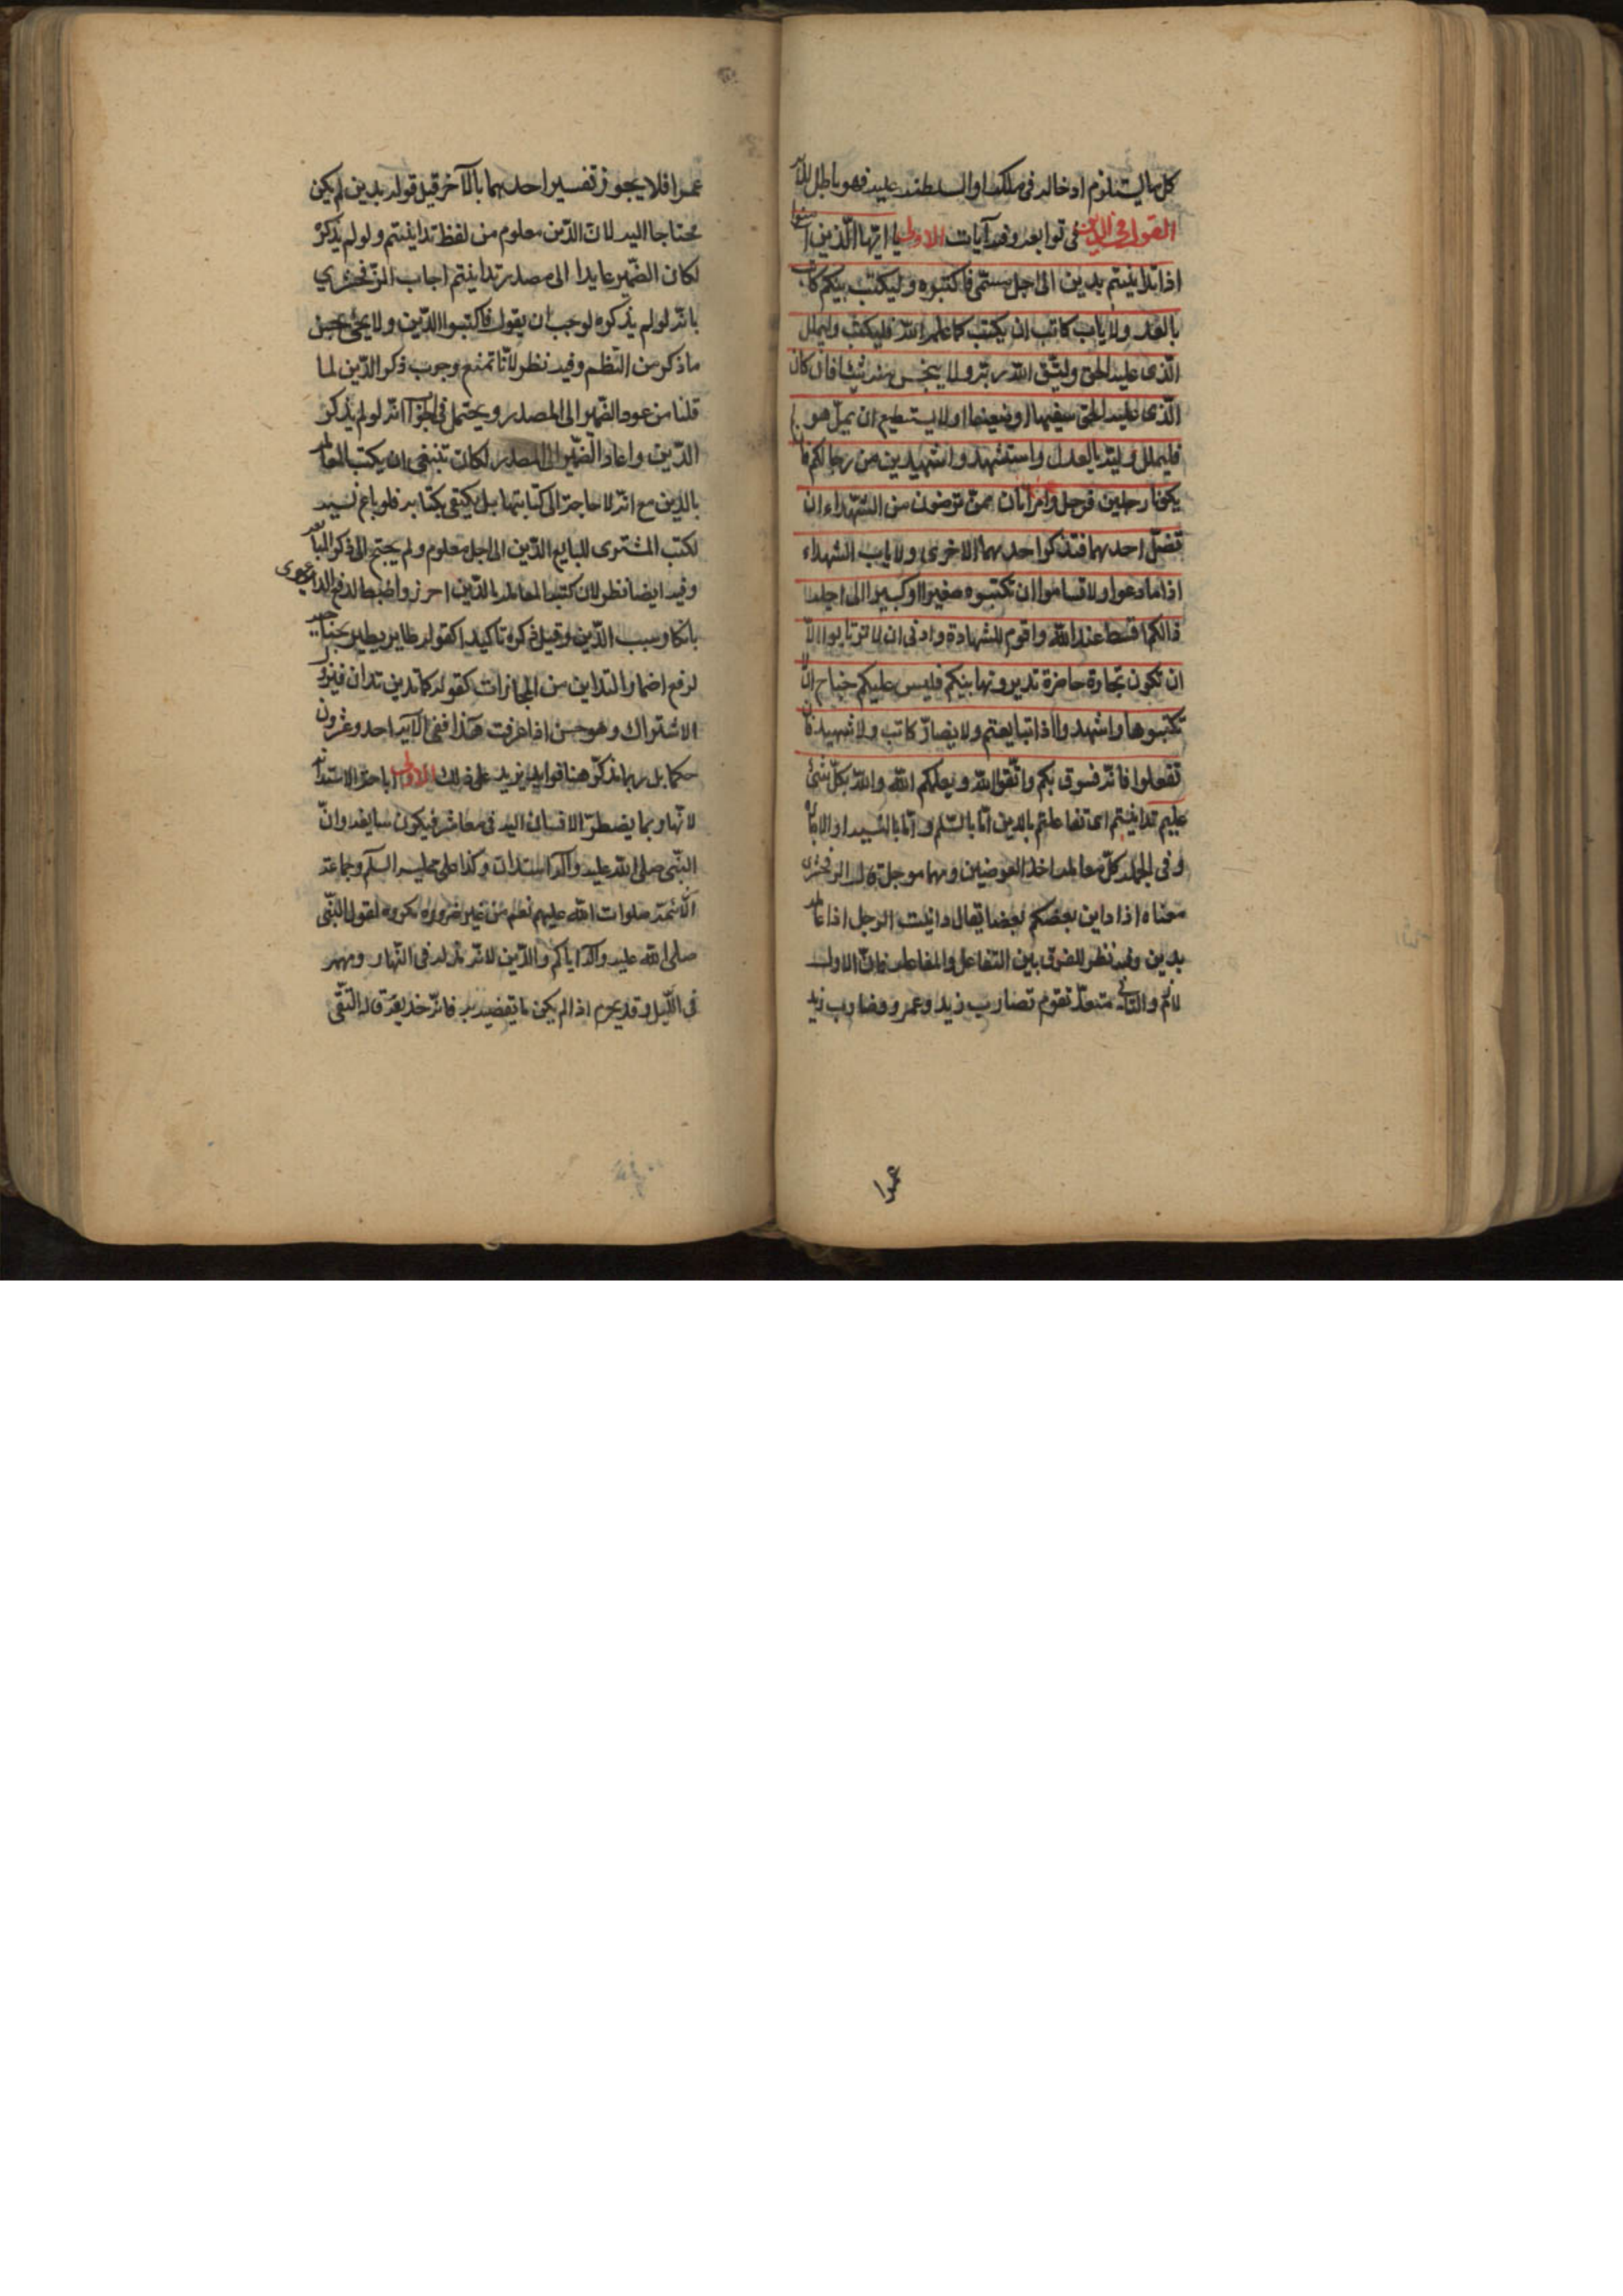 كل ما يستلزم ادخاله فى ملكه او السلطنه عليه فهو باطل للآية
القول في الدين فى توابعه وفيه آيات الاولى يا ايها الذين آمنوا
اذا تداينتم بدين الى اجل مسمى فاكتبوه وليكتب بينكم كاتب
بالعدل ولا ياب كاتب ان يكتب كما علمه الله فليكتب وليملل
الذى عليه الحق وليتق الله ربه ولا يبخس منه شيئا فان كان
الذى عليه الحق سفيها او ضعيفا او لا يستطيع ان يمل هو
فليملل وليه بالعدل واستشهدوا شهيدين من رجالكم فان
يكونا رجلين فرجل وامراتان ممن ترضون من الشهداء ان
تضل احديهما فتذكر احديهما الاخرى ولا ياب الشهداء
اذا ما دعوا ولا تساموا ان تكتبوه صغيرا او كبيرا الى اجله
ذالكم اقسط عند الله واقوم للشهادة وادنى ان لا ترتابوا الا
ان تكون تجارة حاضرة تديرونها بينكم فليس عليكم جناح ان لا
تكتبوها واشهدوا اذا تبايعتم ولا يضار كاتب ولا شهيد فان
تفعلوا فانه فسوق بكم واتقوا الله ويعلمكم الله والله بكل شئ
عليم تداينتم اى تعاملتم بالدين اما بالسلم واما بالنسية او الاجارة
وفى الجملة كل معاملة احد العوضين فيهما مؤجل قال الزمخشرى
معناه اذا داين بعضكم بعضا يقال داينت الرجل اذا عاملته
بدين وفيه نظر للفرق بين التفاعل والمفاعلة فان الاول
لازم والثانى متعد تقول تضارب زيد وعمرو وضارب زيد
عمرا
عمرا فلا يجوز تفسير احدهما بالآخر قيل قوله بدين لم يكن
محتاجا اليه لان الدين معلوم من لفظ تداينتم ولو لم يذكر
لكان الضمير عايدا الى مصدر تداينتم اجاب الزمخشري
بانه لو لم يذكره لوجب ان يقول فاكتبوا الدين ولا يجئ بحسن
ما ذكر من النظم وفيه نظر لانا نمنع وجوب ذكر الدين لما
قلنا من عود الضمير الى المصدر ويحتمل فى الجواب انه لو لم يذكر
الدين واعاد الضمير الى المصدر لكان تنبغى ان يكتب المعاملة
بالدين مع انه لا حاجة الى كتابتها بل يكتفى بكتابته فلو باع نسية
لكتب المشترى للبايع الدين الى اجل معلوم ولم يحتج الى ذكر المبايعة
وفيه ايضا نظر لان كتبه المعاملة بالدين احرز واضبط لدفع الدعوى
بانكار سبب الدين وقيل ذكره تاكيدا كقوله طاير يطير بجناحيه
لرفع اضمار التداين من المجازات كقوله كما تدين تدان فيزول
الاشتراك وهو حسن اذا عرفت هذا ففى الآية احد وعشرون
حكما بل ربما نذكر هنا فوايد يزيد على ذلك الاولى اباحة الاستدانة
لانها ربما يضطر الانسان اليه فى معاشه فيكون سايغه وان
النبى صلى الله عليه وآله استدان وكذا على عليه السلم وجماعة
الائمة صلوات الله عليهم نعم من غير ضرورة مكروه لقول النبى
صلى الله عليه وآله اياكم والدين لانه مذله فى النهار ومهم
فى الليل وقد يحرم اذا لم يكن ما يقضيه به فانه خديعة قال التقى